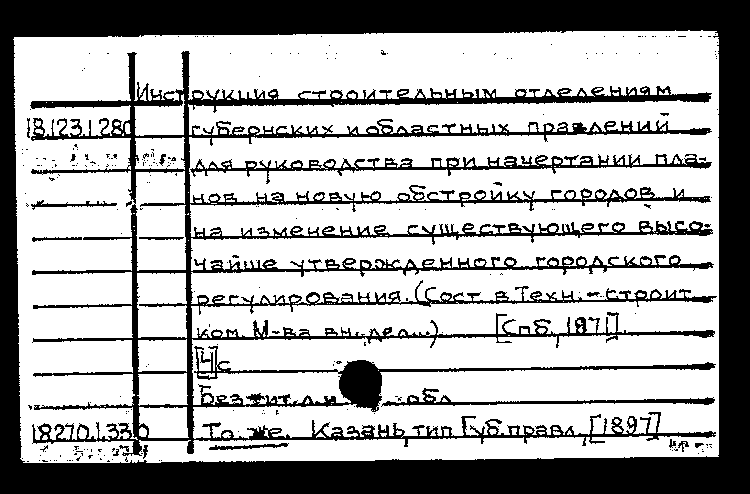 Инструкция строительным отделениям
18.123.1.280 губернских и областных правлений
для руководства при начертании пла-
нов на новую обстройку городов и
на изменение существующего высо-
чайше утвержденного городского
регулирования. (Сост. в Техн.-строит.
ком. М-ва вн. дел...) [Спб., 1871].
[4] с
Без тит. л. и обл
18.270.1.330 То же. Казань, тип Губ. правл., [1897]